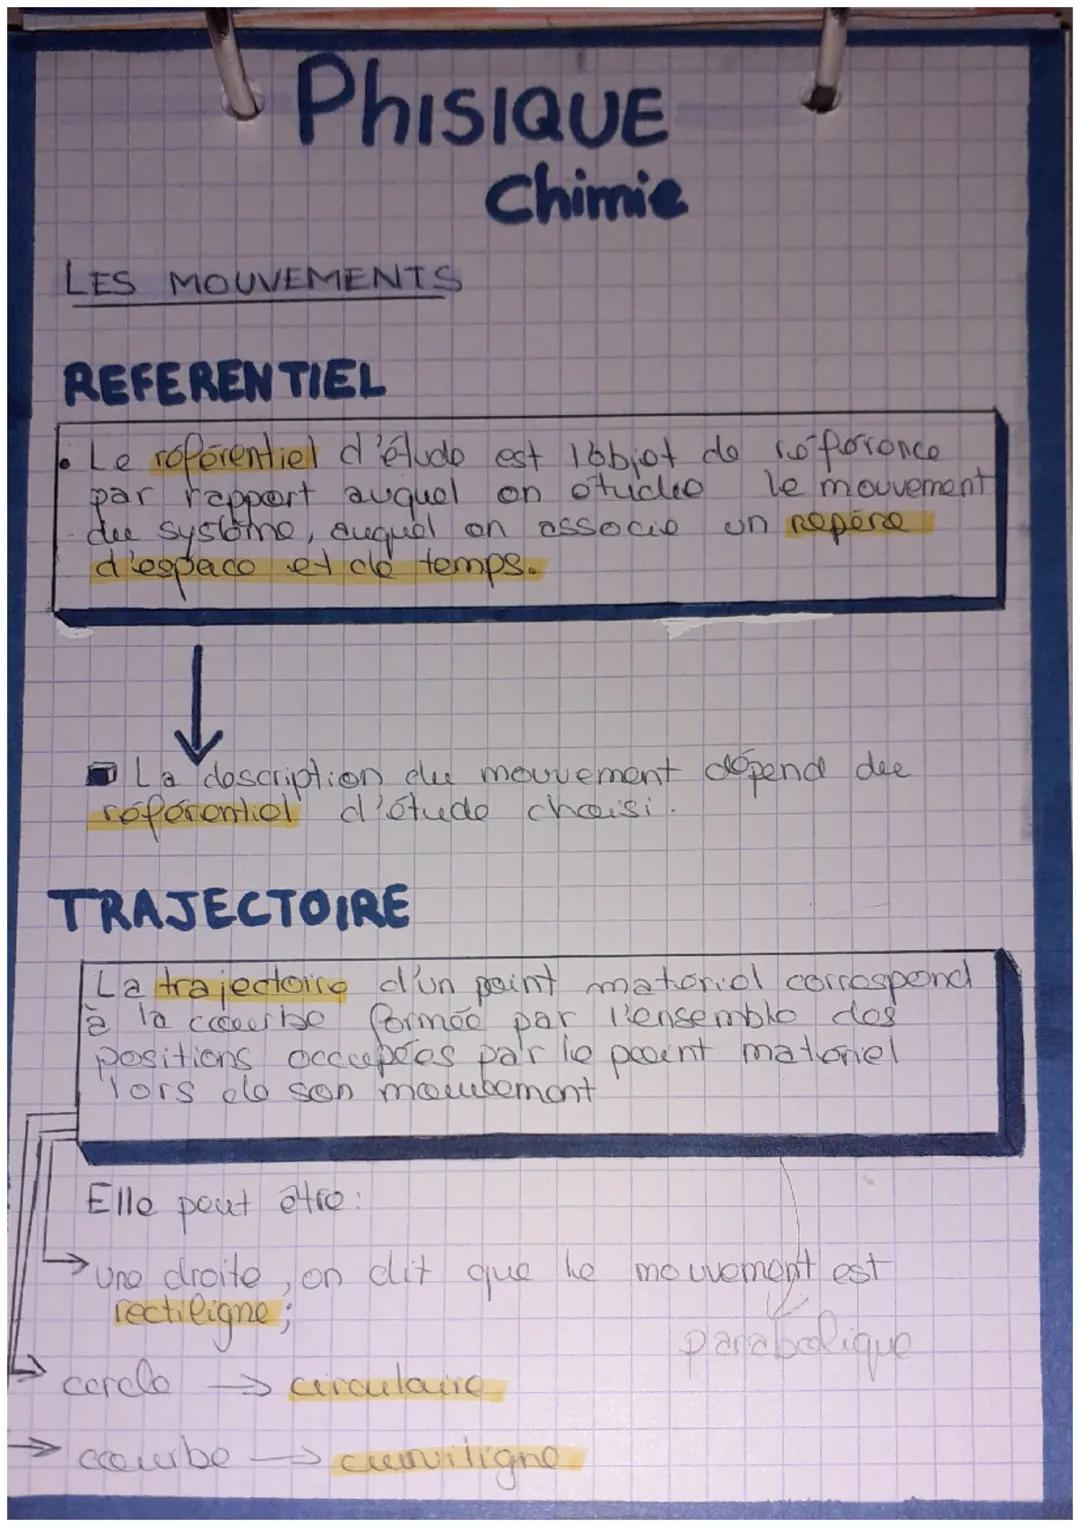 PhISIQUE
Chimie
LES MOUVEMENTS
REFERENTIEL
• Le référentiel d'étude est l'objet de référence
par rapport auquel on étudie le mouvement
du système, auquel on associe un repère
d'espace et de temps.
La description du mouvement dépend du
référentiel d'étude choisi.
TRAJECTOIRE
La trajectoire d'un point matériel correspond
à la courbe formée par l'ensemble des
positions occupées par le point matériel
lors de son mouvement
Elle peut être :
→ une droite, on dit que le mouvement est
rectiligne ;
parabolique
→ cercle → circulaire
→ courbe → curviligne